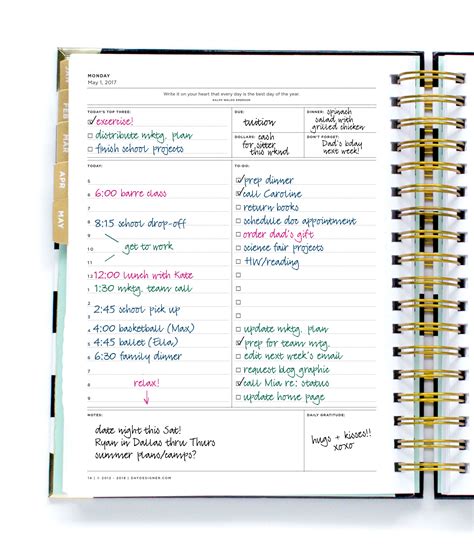 MONDAY
May 1, 2017
Write it on your heart that every day is the best day of the year.
RALPH WALDO EMERSON
TODAY'S TOP THREE:
exercise!
distribute mktg. plan
finish school projects
DUE:
tuition
DINNER: spinach
salad with
grilled chicken
DOLLARS: cash
for sitter
this wknd
DON'T FORGET:
Dad's bday
next week!
TODAY:
5
6:00 barre class
7
8:15 school drop-off
9
10 get to work
11
12:00 lunch with Kate
1:30 mktg. team call
2:45 school pick up
4:00 basketball (Max)
4:45 ballet (Ella)
6:30 family dinner
7
8 relax!
9
TO-DO:
prep dinner
call Caroline
return books
schedule doc appointment
order dad's gift
science fair projects
HW/reading
update mktg. plan
prep for team mtg.
edit next week's email
request blog graphic
call Mia re: status
update home page
NOTES:
date night this Sat!
Ryan in Dallas thru Thurs
summer plans/camps?
DAILY GRATITUDE:
hugs + kisses!!
xoxo
DAYDESIGNER.COM
FEB
MAR
APR
MAY